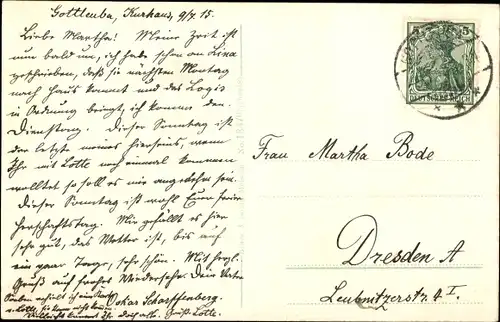 Gottleuba, Kurhaus, 9/7. 15.
Liebe Martha! Meine Zeit ist
nun bald um, ich habe schon an Lina
geschrieben, daß sie nächsten Montag
nach Haus kommt und das Logis
in Ordnung bringt, ich komme den
Dienstag. Dieser Sonntag ist
der letzte meines Hierseins, wenn
Ihr mit Lotte noch einmal kommen
wolltet so soll es mir angenehm sein.
Dieser Sonntag ist wohl Euer
herschaftstag. Mir gefällt es hier
sehr gut, das Wetter ist, bis auf
ein paar Tage, sehr schön. Mit herzl.
Gruß auf frohes Wiedersehn. Dein Vater
Oskar Scharffenberg.
Soeben erhielt ich
v. Lotte, sie kann nicht kommen
vielleicht kommt Ihr doch alle. Gruß Lotte.
5 5
DEUTSCHES REICH
Frau Martha Bode
Dresden A
Leubnitzerstr. 4 I.